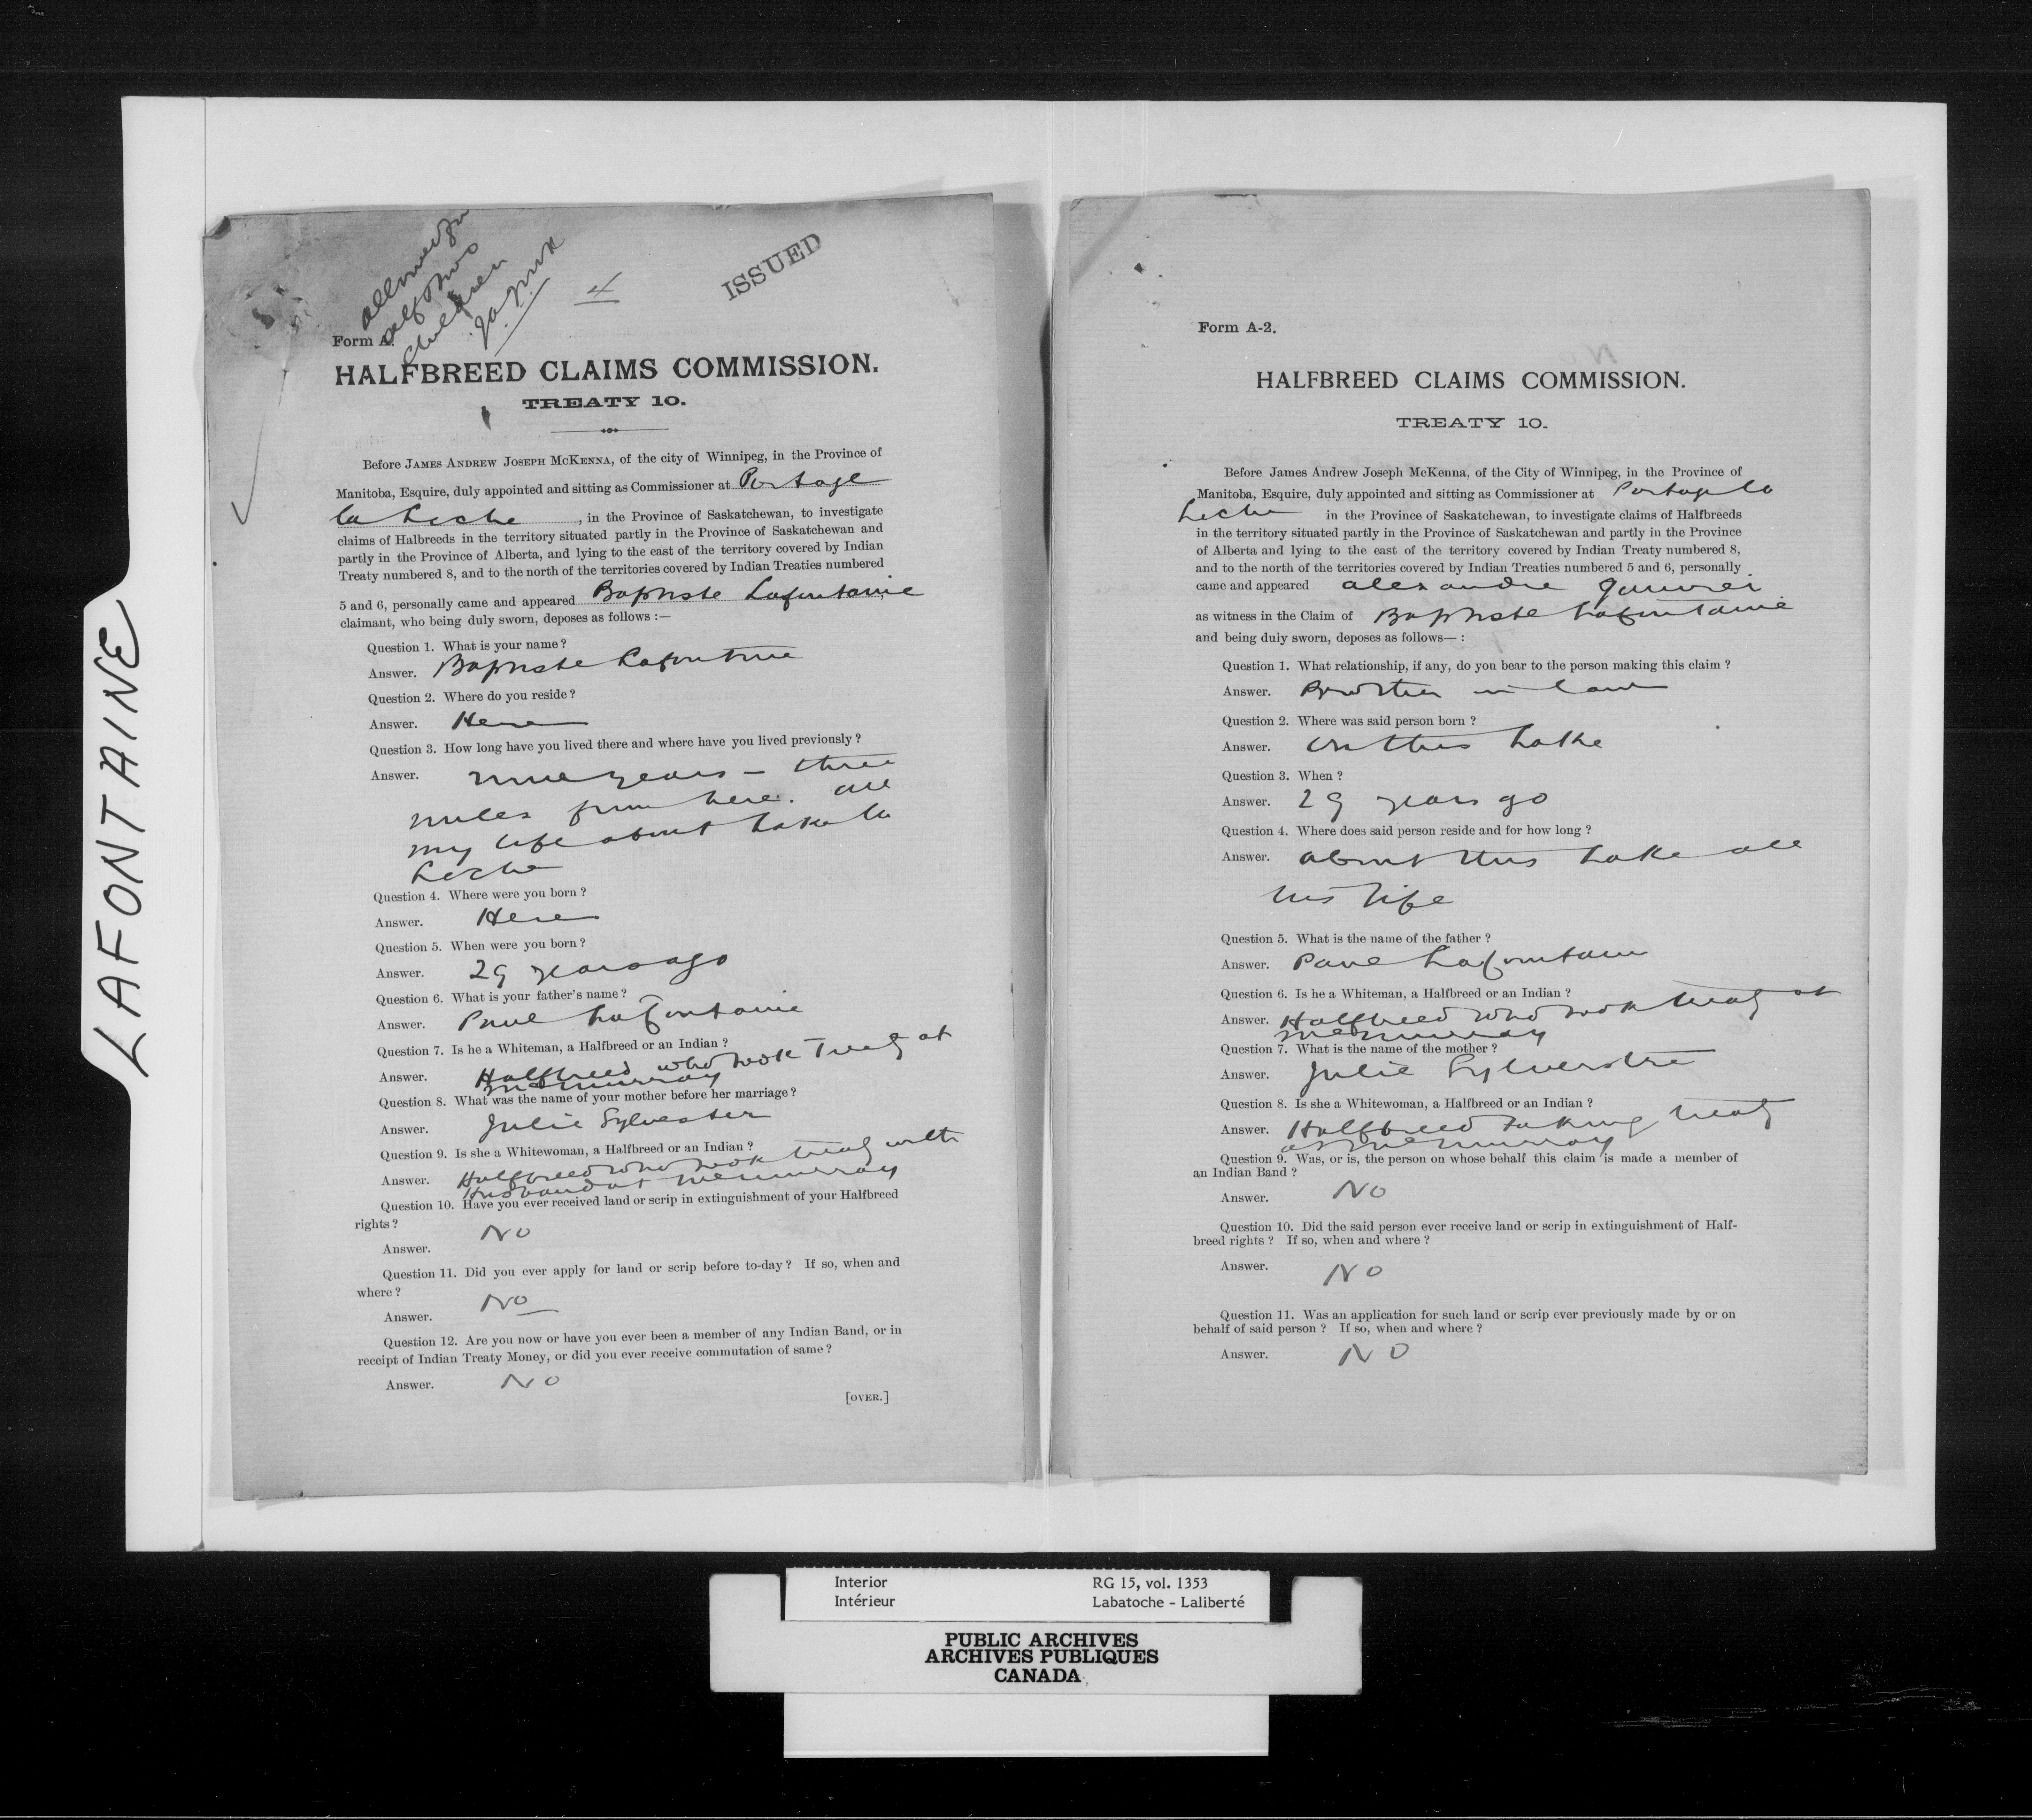 LAFONTAINE
Allowed for
self & two
children
JAJMcK
4
ISSUED
Form A.
HALFBREED CLAIMS COMMISSION.
TREATY 10.
Before JAMES ANDREW JOSEPH MCKENNA, of the city of Winnipeg, in the Province of
Manitoba, Esquire, duly appointed and sitting as Commissioner at Portage
la Loche, in the Province of Saskatchewan, to investigate
claims of Halbreeds in the territory situated partly in the Province of Saskatchewan and
partly in the Province of Alberta, and lying to the east of the territory covered by Indian
Treaty numbered 8, and to the north of the territories covered by Indian Treaties numbered
5 and 6, personally came and appeared Baptiste Lafontaine
claimant, who being duly sworn, deposes as follows :—
Question 1. What is your name ?
Answer. Baptiste Lafontaine
Question 2. Where do you reside ?
Answer. Here
Question 3. How long have you lived there and where have you lived previously ?
Answer. nine years – three
miles from here. all
my life about Lake la
Loche
Question 4. Where were you born ?
Answer. Here
Question 5. When were you born ?
Answer. 29 years ago
Question 6. What is your father's name ?
Answer. Paul Lafontaine
Question 7. Is he a Whiteman, a Halfbreed or an Indian ?
Answer. Halfbreed who took Treaty at
McMurray
Question 8. What was the name of your mother before her marriage ?
Answer. Julie Sylvester
Question 9. Is she a Whitewoman, a Halfbreed or an Indian ?
Answer. Halfbreed who took treaty with
Husband at McMurray
Question 10. Have you ever received land or scrip in extinguishment of your Halfbreed
rights ?
Answer. No
Question 11. Did you ever apply for land or scrip before to-day ? If so, when and
where ?
Answer. No
Question 12. Are you now or have you ever been a member of any Indian Band, or in
receipt of Indian Treaty Money, or did you ever receive commutation of same ?
Answer. No
[OVER.]
Form A-2.
HALFBREED CLAIMS COMMISSION.
TREATY 10.
Before James Andrew Joseph McKenna, of the City of Winnipeg, in the Province of
Manitoba, Esquire, duly appointed and sitting as Commissioner at Portage la
Loche in the Province of Saskatchewan, to investigate claims of Halfbreeds
in the territory situated partly in the Province of Saskatchewan and partly in the Province
of Alberta and lying to the east of the territory covered by Indian Treaty numbered 8,
and to the north of the territories covered by Indian Treaties numbered 5 and 6, personally
came and appeared Alexandre Janvier
as witness in the Claim of Baptiste Lafontaine
and being duly sworn, deposes as follows— :
Question 1. What relationship, if any, do you bear to the person making this claim ?
Answer. Brother in law
Question 2. Where was said person born ?
Answer. On this Lake
Question 3. When ?
Answer. 29 years go
Question 4. Where does said person reside and for how long ?
Answer. about this Lake all
his life
Question 5. What is the name of the father ?
Answer. Paul Lafontain
Question 6. Is he a Whiteman, a Halfbreed or an Indian ?
Answer. Halfbreed who took treaty at
McMurray
Question 7. What is the name of the mother ?
Answer. Julie Sylverstre
Question 8. Is she a Whitewoman, a Halfbreed or an Indian ?
Answer. Halfbreed taking treaty
at McMurray
Question 9. Was, or is, the person on whose behalf this claim is made a member of
an Indian Band ?
Answer. No
Question 10. Did the said person ever receive land or scrip in extinguishment of Half-
breed rights ? If so, when and where ?
Answer. No
Question 11. Was an application for such land or scrip ever previously made by or on
behalf of said person ? If so, when and where ?
Answer. NO
Interior
Intérieur
RG 15, vol. 1353
Labatoche - Laliberté
PUBLIC ARCHIVES
ARCHIVES PUBLIQUES
CANADA